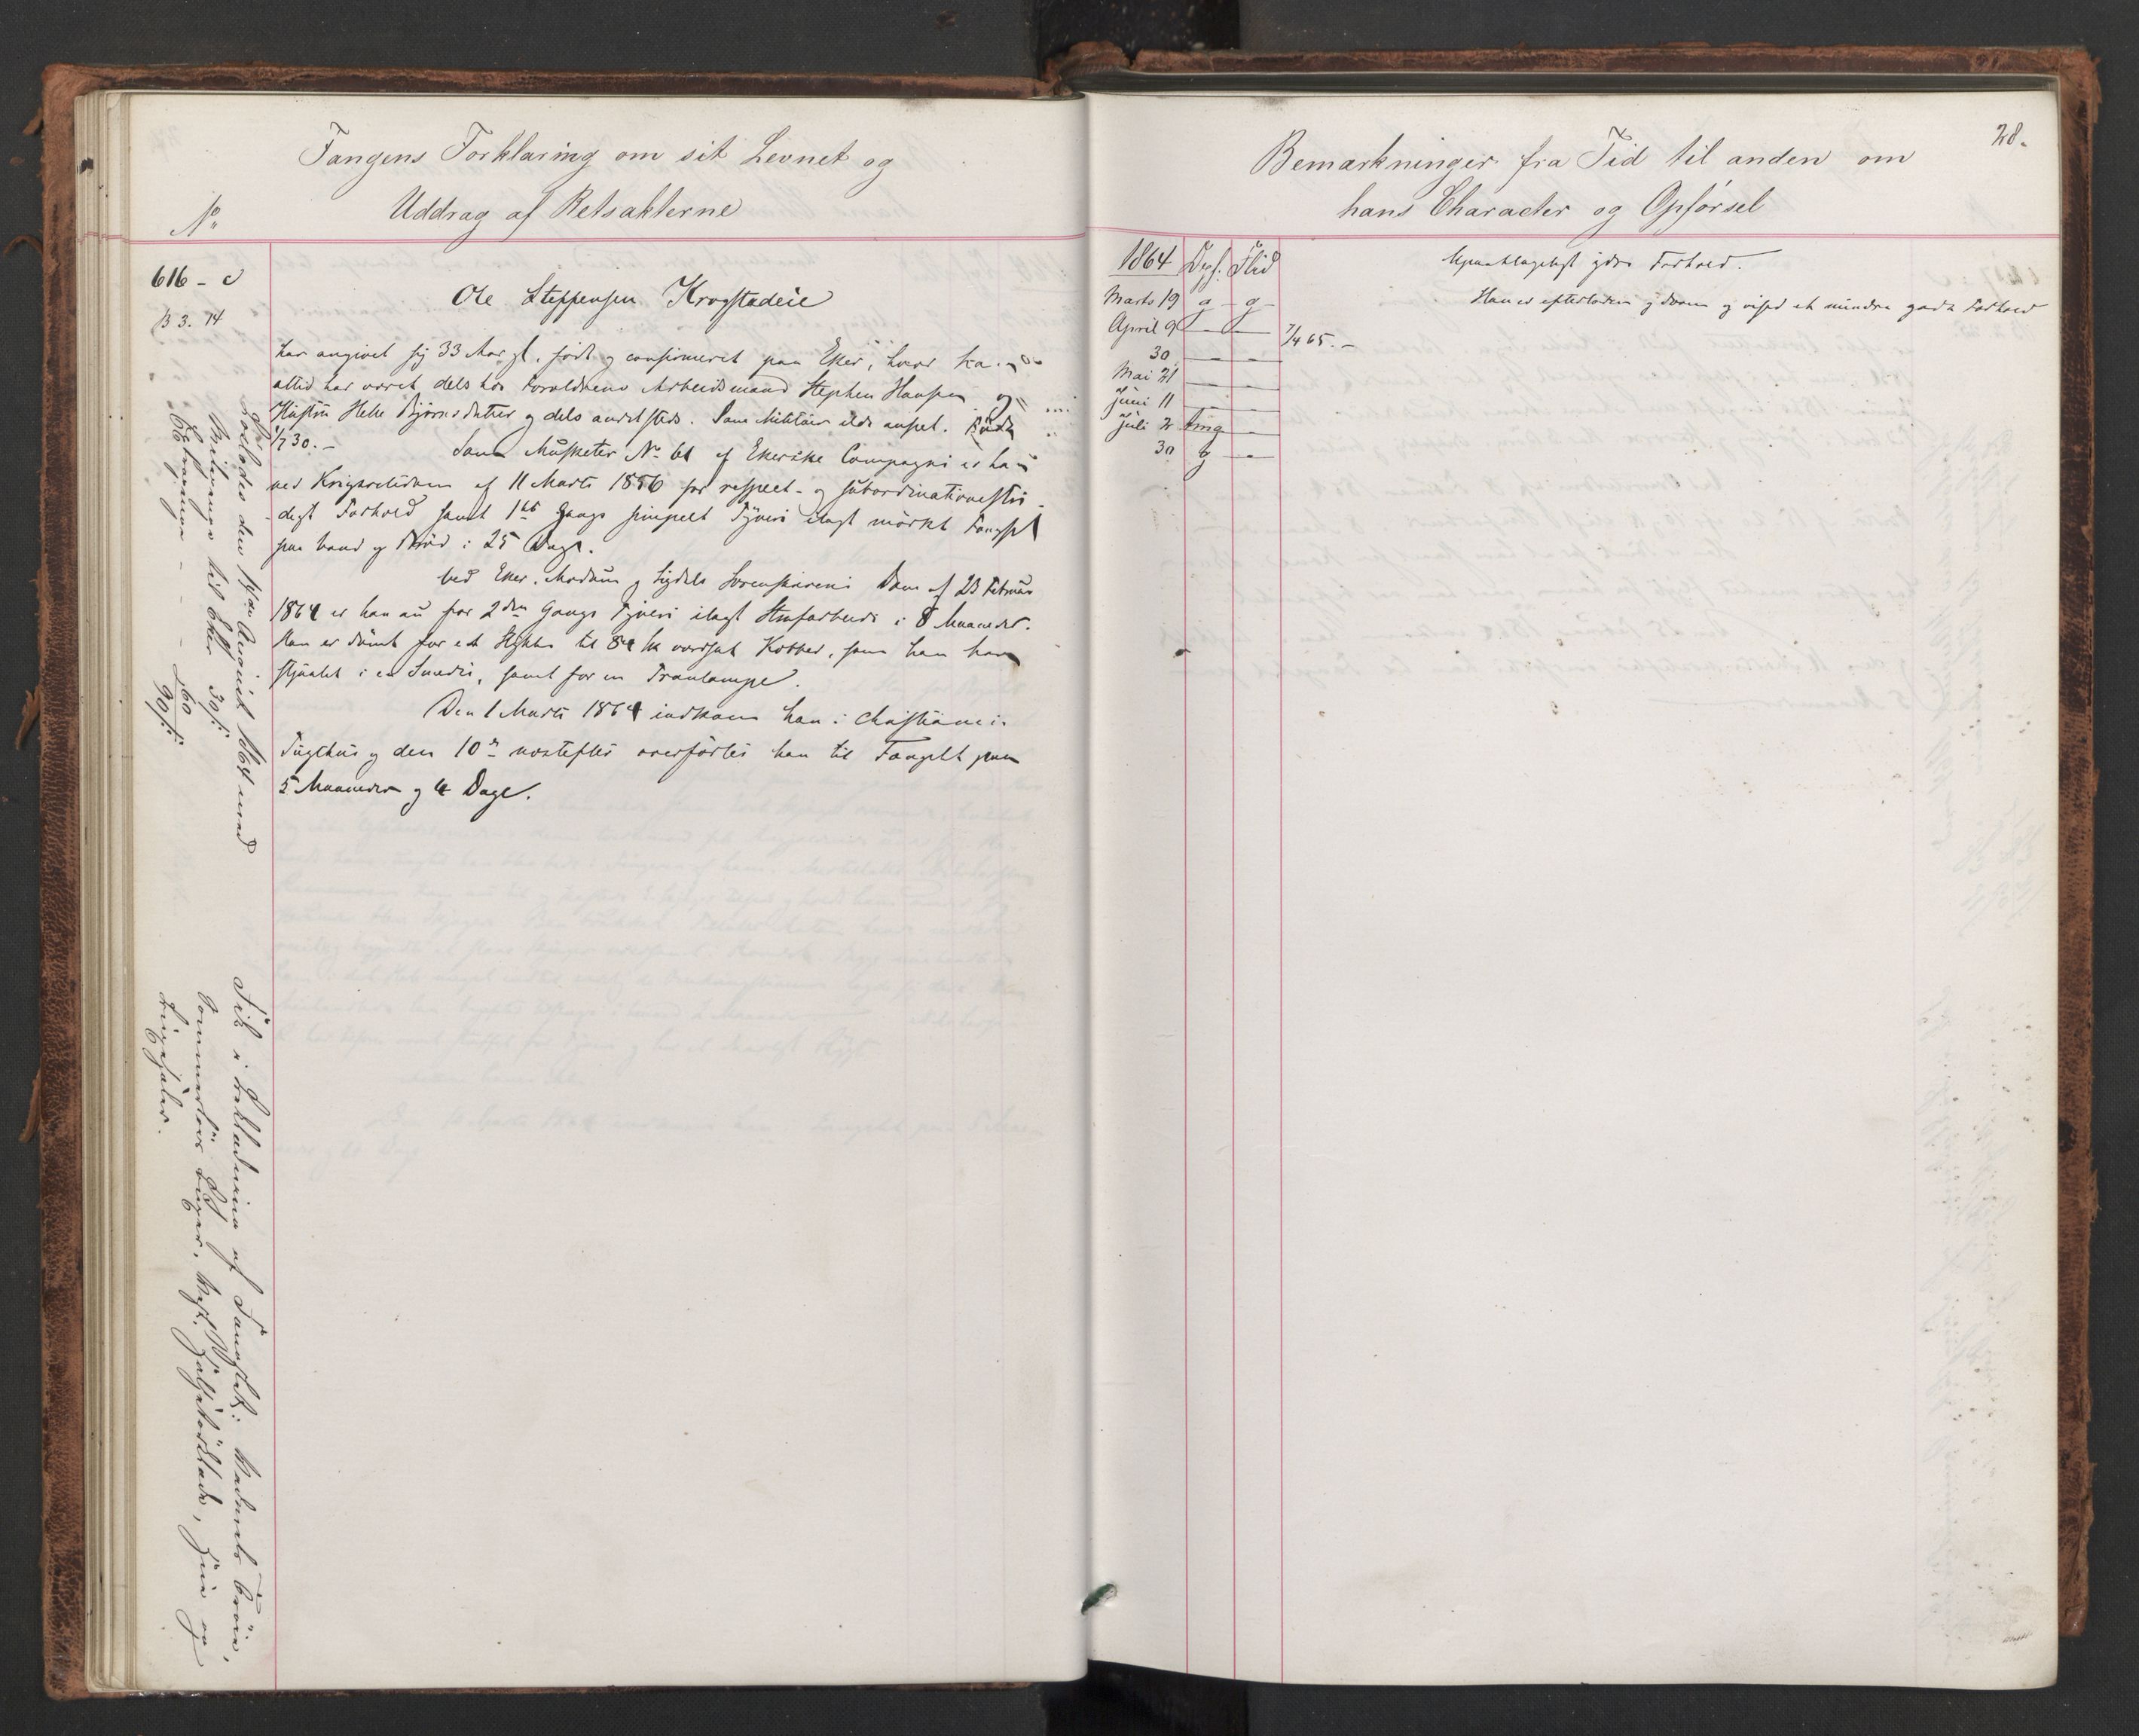 Fangens Forklaring om sit Levnet og
Uddrag af Retsakterne
No
616 - c
B 3. 14
Ole Steffensen Krogstadeie
har angivet sig 33 Aar gl. født og confirmeret paa Eker, hvor ha
altid har været dels hos Forældrene Arbeidsmand Stephen Hansen og
Hustru Helle Bjørnsdatter og dels andetsteds. Som Militair ilde anseet. Född
1/7 30. -
Som Musketer No 61 af Ekerske Compagni er han
ved Krigsretsdom af 11 Marts 1856 for respect- og subordinationsstri-
digt Forhold samt 1ste Gangs simpelt Tyveri ilagt mörkt Fængsel
paa Vand og Bröd i 25 Dage.
Ved Eker, Modum og Sigdals Sorenskriveris Dom af 23 Februar
1864 er han nu for 2den Gangs Tyveri ilagt Strafarbeide i 8 Maaneder.
Han er dömt for et Stykke til 84 sk værdsat Kobber, som han har
stjaalet i en Smedie, samt for en Tranlampe.
Den 1 Marts 1864 indkom han i Christiania
Tugthus og den 10de næstefter overførtes han til Fængslet paa
5 Maaneder og Dage.
Löslades den August 1864 med
Reisepenge til Eker 30 s:
Extrapenge - - - 60
90 s:
Fik i af Fængslet: Vadmels
Buxer, Halstörklæde, Hue og
28.
Bemærkninger fra Tid til anden om
hans Character og Opførsel
1864 Opf. Flid
Marts 19 g g
April 9 — —
30 — —
Mai 21 — —
Juni 11 — —
Juli 2 tmg —
30 g —
Upaaklageligt ydre Forhold.
7/4 65. -
Han er efterladen og doven og viser et mindre godt Forhold